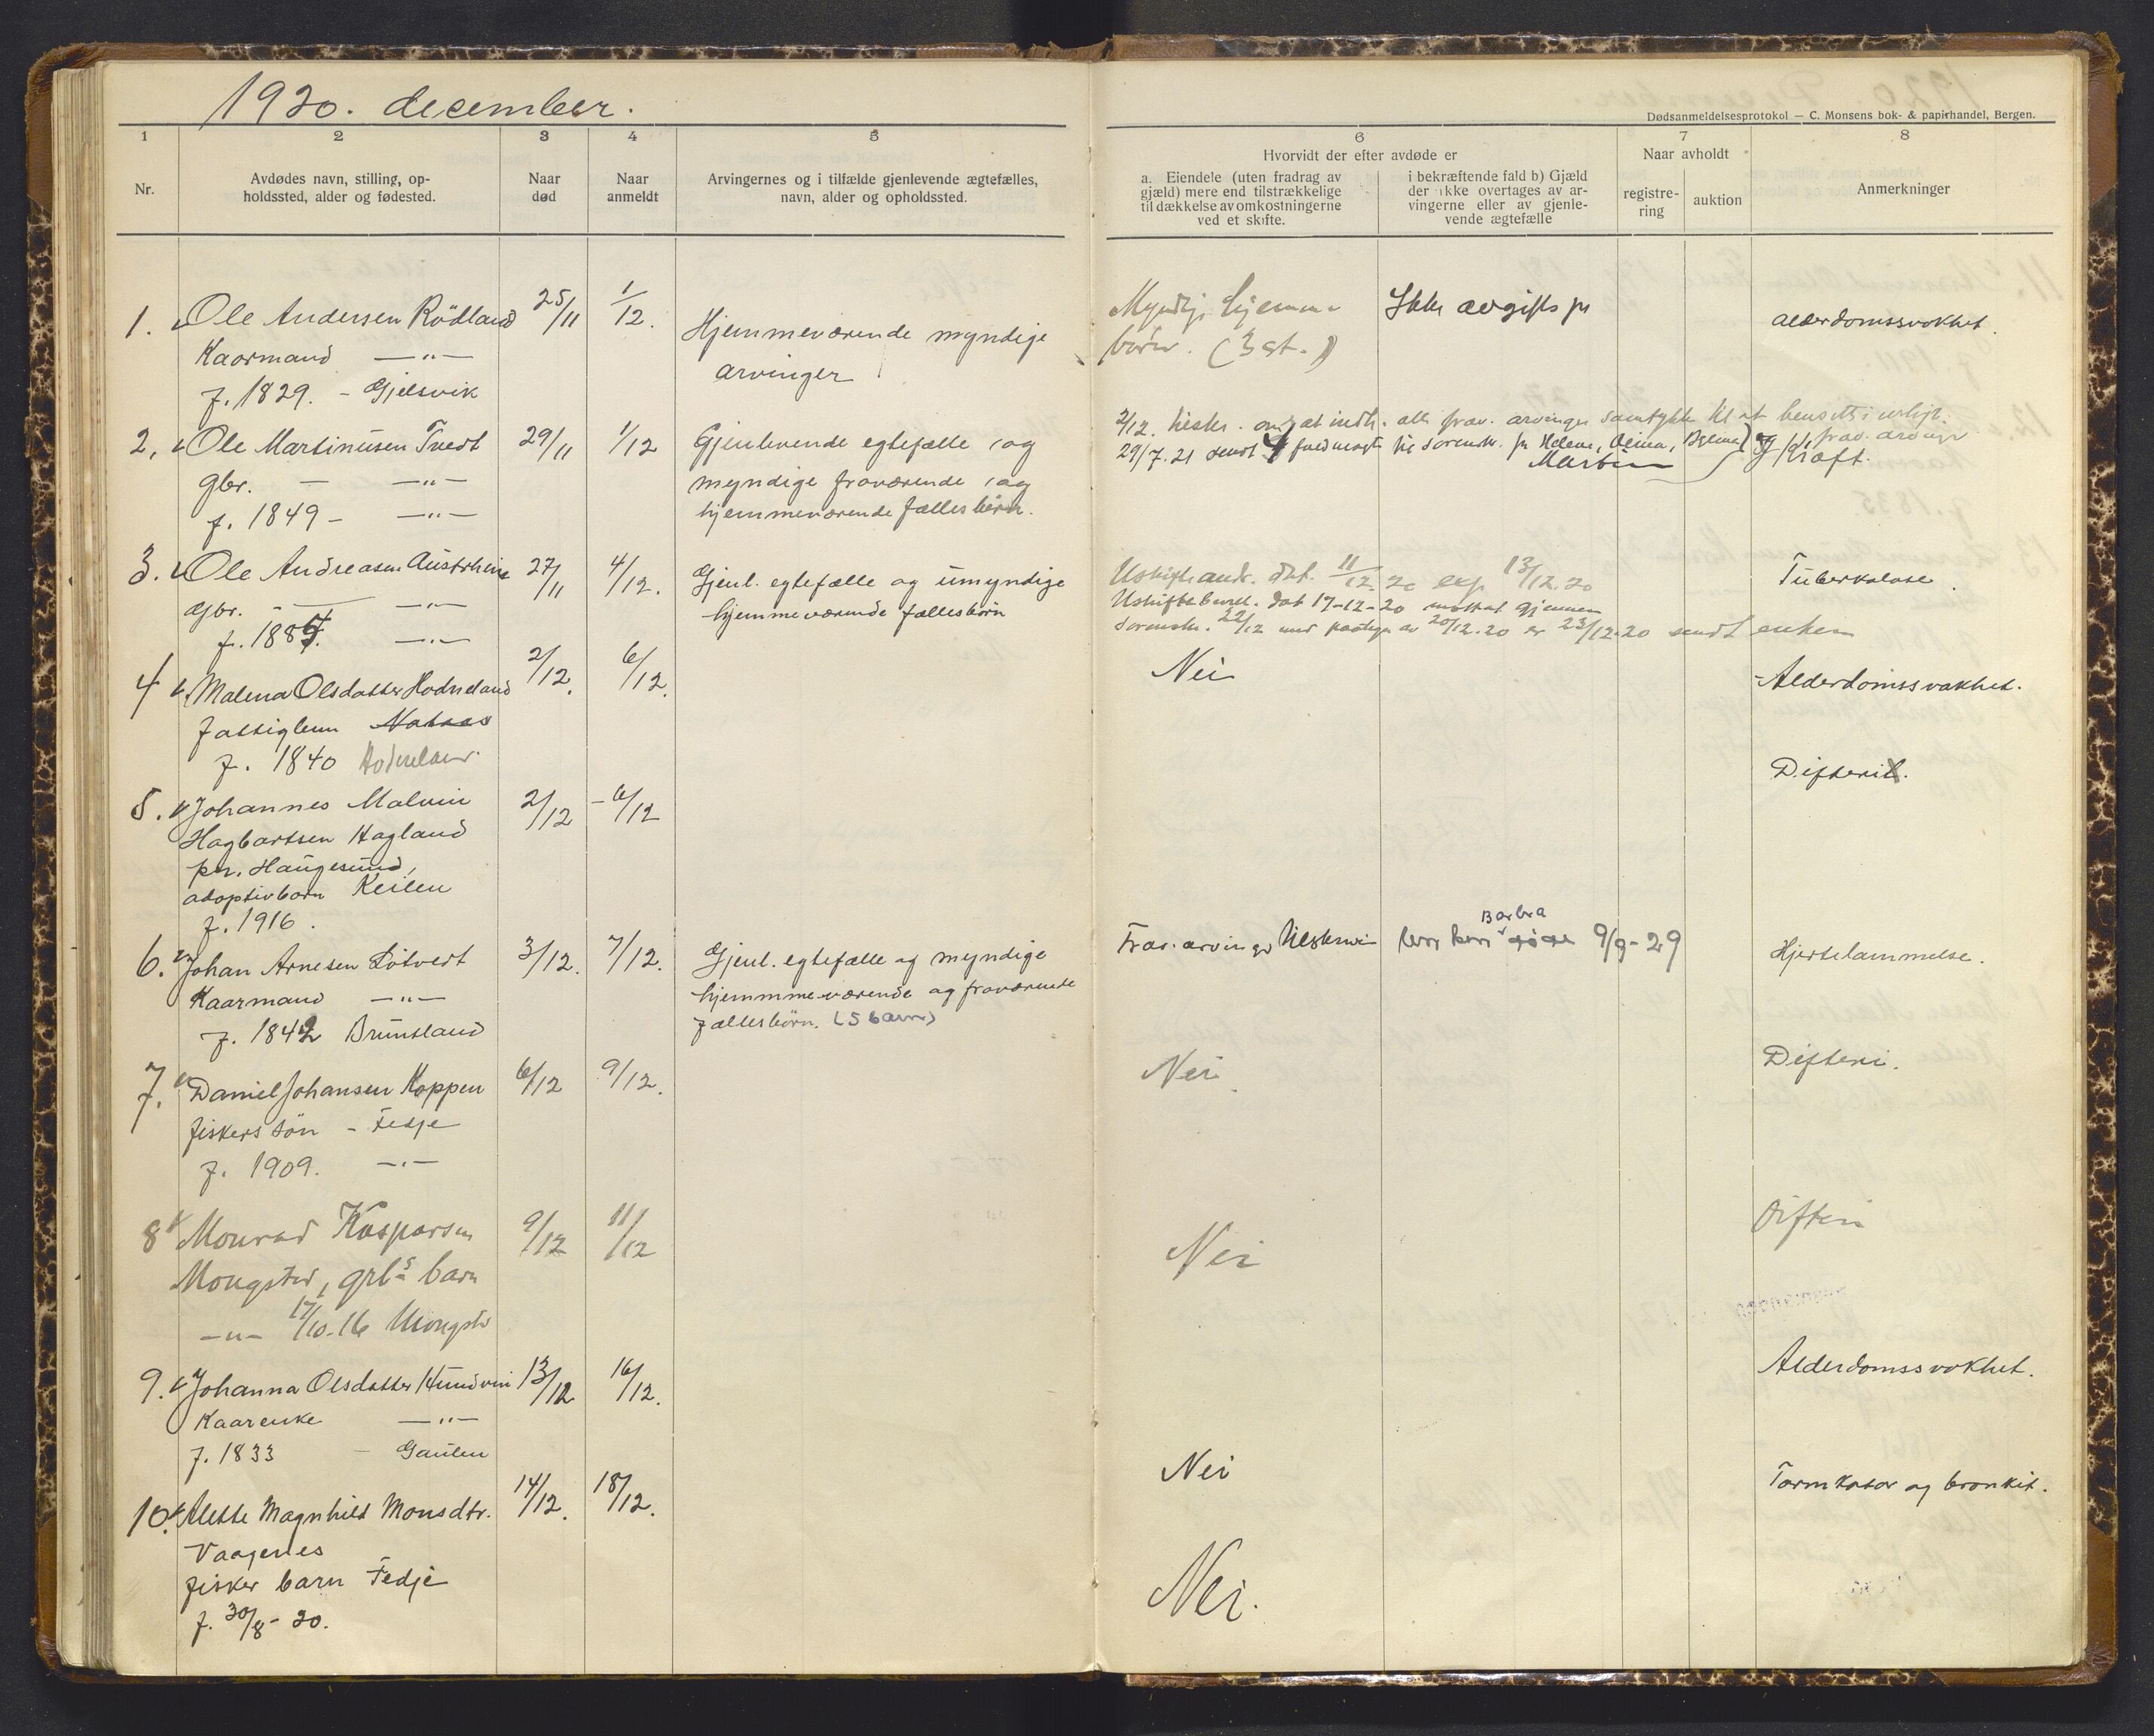 1920. december.
Dødsanmeldelsesprotokol — C. Monsens bok- & papirhandel, Bergen.
1
2
3
4
5
6
7
8
Nr.
Avdødes navn, stilling, op-
holdssted, alder og fødested.
Naar
død
Naar
anmeldt
Arvingernes og i tilfælde gjenlevende ægtefælles,
navn, alder og opholdssted.
Hvorvidt der efter avdøde er
a. Eiendele (uten fradrag av
gjæld) mere end tilstrækkelige
til dækkelse av omkostningerne
ved et skifte.
i bekræftende fald b) Gjæld
der ikke overtages av ar-
vingerne eller av gjenle-
vende ægtefælle
Naar avholdt
registre-
ring
auktion
Anmerkninger
1. Ole Andersen Rödland 25/11 1/12.
Kaarmand —"—
f. 1829. - Gjelsvik
Hjemmeværende myndige
arvinger
Myndige hjemme
børn. (3 st.)
Ikke avgifts
alderdomssvakhet.
2. Ole Martinusen Tvedt 29/11 1/12
gbr. — —"—
f. 1849 - —"—
Gjenlevende egtefælle og
myndige fraværende og
hjemmeværende fællesbörn.
2/12. at indh. alle frav. arvinger samtykke til at
29/7.21 sendt 4 til sorenskr. Helene,
Martin
Kraft.
3. Ole Andreasen Austrheim 27/11 4/12.
Gbr. - —"—
f. 1887. —"—
Gjenl. egtefælle og umyndige
hjemmeværende fællesbörn
Uskifteandr. dat. 11/12.20 exp. 13/12.20
Uskiftebevil. dat 17-12-20 mottat gjennem
sorenskr. 22/12 med paategn. av 20/12.20 er 23/12.20 sendt enken
Tuberkulose.
4 Malena Olsdatter Hodneland 2/12. 6/12.
fattiglem
f. 1840 Hodneland
Nei
Alderdomssvakhet.
5. Johannes Malvin 2/12 - 6/12
Hagbartsen Hagland
pr. Haugesund,
adoptivbarn Keilen
f. 1916.
Difteri.
6. Johan Arnesen Lötvedt 3/12. 7/12.
Kaarmand —"—
f. 1842 Brundtland
Gjenl. egtefælle og myndige
hjemmmeværende og fraværende
fællesbörn. (5 barn)
Frav. arvinger
Barbra
9/9-29
Hjertelammelse.
7. Daniel Johansen Koppen 6/12 9/12.
fiskers sön - Fedje
f. 1909. —"—
Nei
Difteri.
8 Monrad Kasparsen 9/12 11/12
Mongstad, grb.s barn
—"— 17/10-16 Mongstad
Nei
Difteri
9. Johanna Olsdatter Hundvin 13/12 16/12.
Kaarenke —"—
f. 1833 - Gaulen
Nei
Alderdomssvakhet.
10. Alette Magnhild Monsdtr. 14/12. 18/12.
Vaagenes
fisker barn Fedje
f. 30/8-20.
Nei.
Tarmkatar og bronkit.